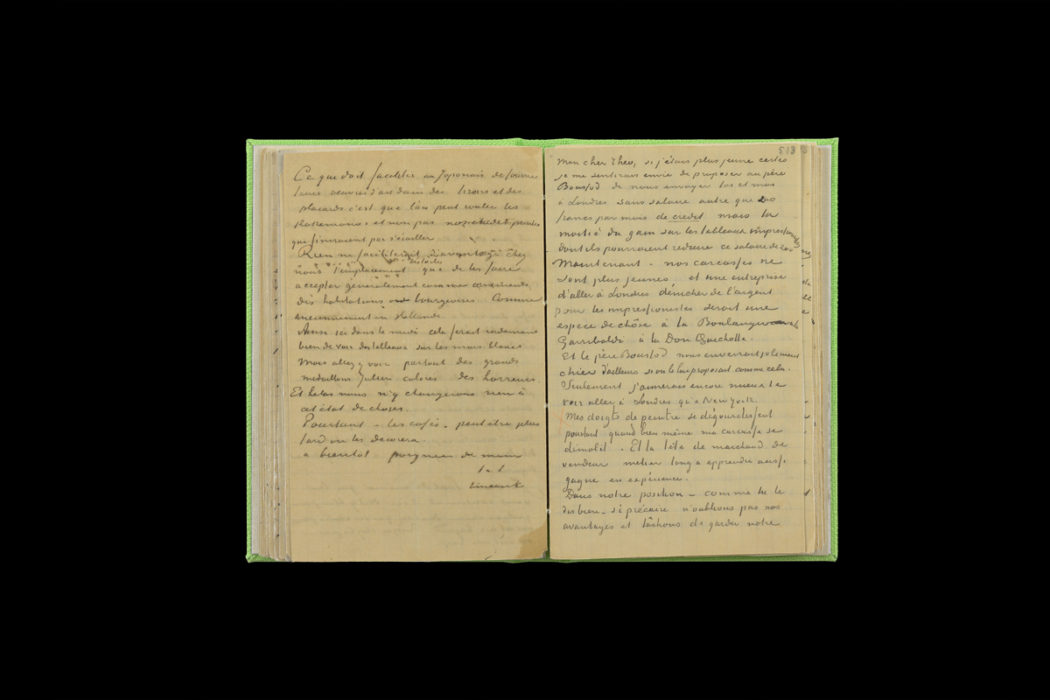 Ce que doit faciliter au Japonais de fourrer
leurs oeuvres d'art dans des tiroirs et des
placards c'est que l'on peut rouler les
Kakemonos et non pas nos peintes
qui finiraient par s'écailler
Rien ne faciliterait davantage chez
nous l'emplacement des toiles que de les faire
accepter généralement comme ornements
des habitations bourgeoises. Comme
anciennement en Hollande.
Ainsi ici dans le midi cela ferait rudement
bien de voir des tableaux sur les murs blancs
Mais allez y voir partout des grands
medaillons Julien coloriés des horreurs.
Et helas nous n'y changerons rien à
cet état de choses.
Pourtant – les cafés – peut etre plus
tard on les decorera.
a bientot poignée de main
t. à t.
Vincent
513
Mon cher Theo, si j'étais plus jeune certes
je me sentirais envie de proposer au père
Boussod de nous envoyer toi et moi
à Londres sans salaire autre que 200
francs par mois de credit mais la
moitié du gain sur les tableaux impressionistes
dont ils pourraient reduire ce salaire de 200
Maintenant – nos carcasses ne
sont plus jeunes et une entreprise
d'aller à Londres dénicher de l'argent
pour les impressionistes serait une
espèce de chôse à la Boulanger
Garribaldi à la Don Quechotte.
Et le père Boussod nous enverrait joliment
chier d'ailleurs si on le lui proposait comme cela.
Seulement j'aimerais encore mieux te
voir aller à Londres qu'à New York.
Mes doigts de peintre se dégourdissent
pourtant quand bien même ma carcasse se
démolit. Et la tête de marchand de
vendeur metier long à apprendre aussi
gagne en expérience.
Dans notre position – comme tu le
dis bien – si précaire n'oublions pas nos
avantages et tâchons de garder notre